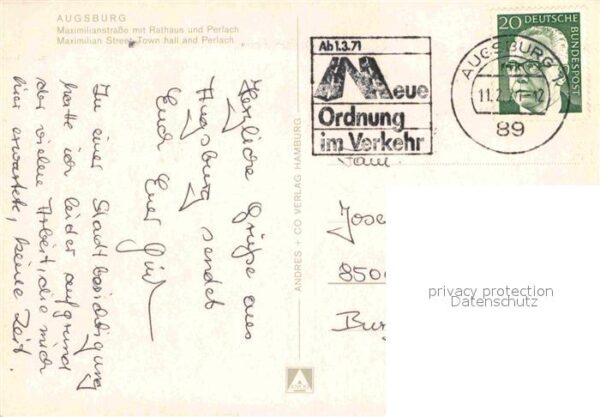 AUGSBURG
Maximilianstraße mit Rathaus und Perlach
Maximilian Street Town hall and Perlach
Herzliche Grüße aus
Augsburg sendet
Euch Euer
Zu einer Stadtbesichtigung
hatte ich leider aufgrund
der vielen Arbeit, die mich
hier erwartete, keine Zeit.
ANDRES + CO VERLAG HAMBURG
Ab 1.3.71
Neue
Ordnung
im Verkehr
AUGSBURG
11.2.71-12
89
20 DEUTSCHE
BUNDESPOST
Fam.
Jose
850
privacy protection
Datenschutz